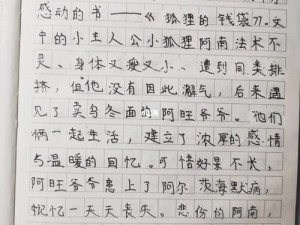 感动的书——《狐狸的钱袋》。文
中的小主人公小狐狸阿南法术不
灵、身体又瘦又小、遭到同类排
挤,但他没有因此泄气,后来遇
见了卖乌冬面的阿旺爷爷。他们
俩一起生活,建立了浓厚的感情
与温暖的回忆。可惜好景不长,
阿旺爷爷患上了阿尔茨海默病,
记忆一天天丧失。悲伤的阿南,